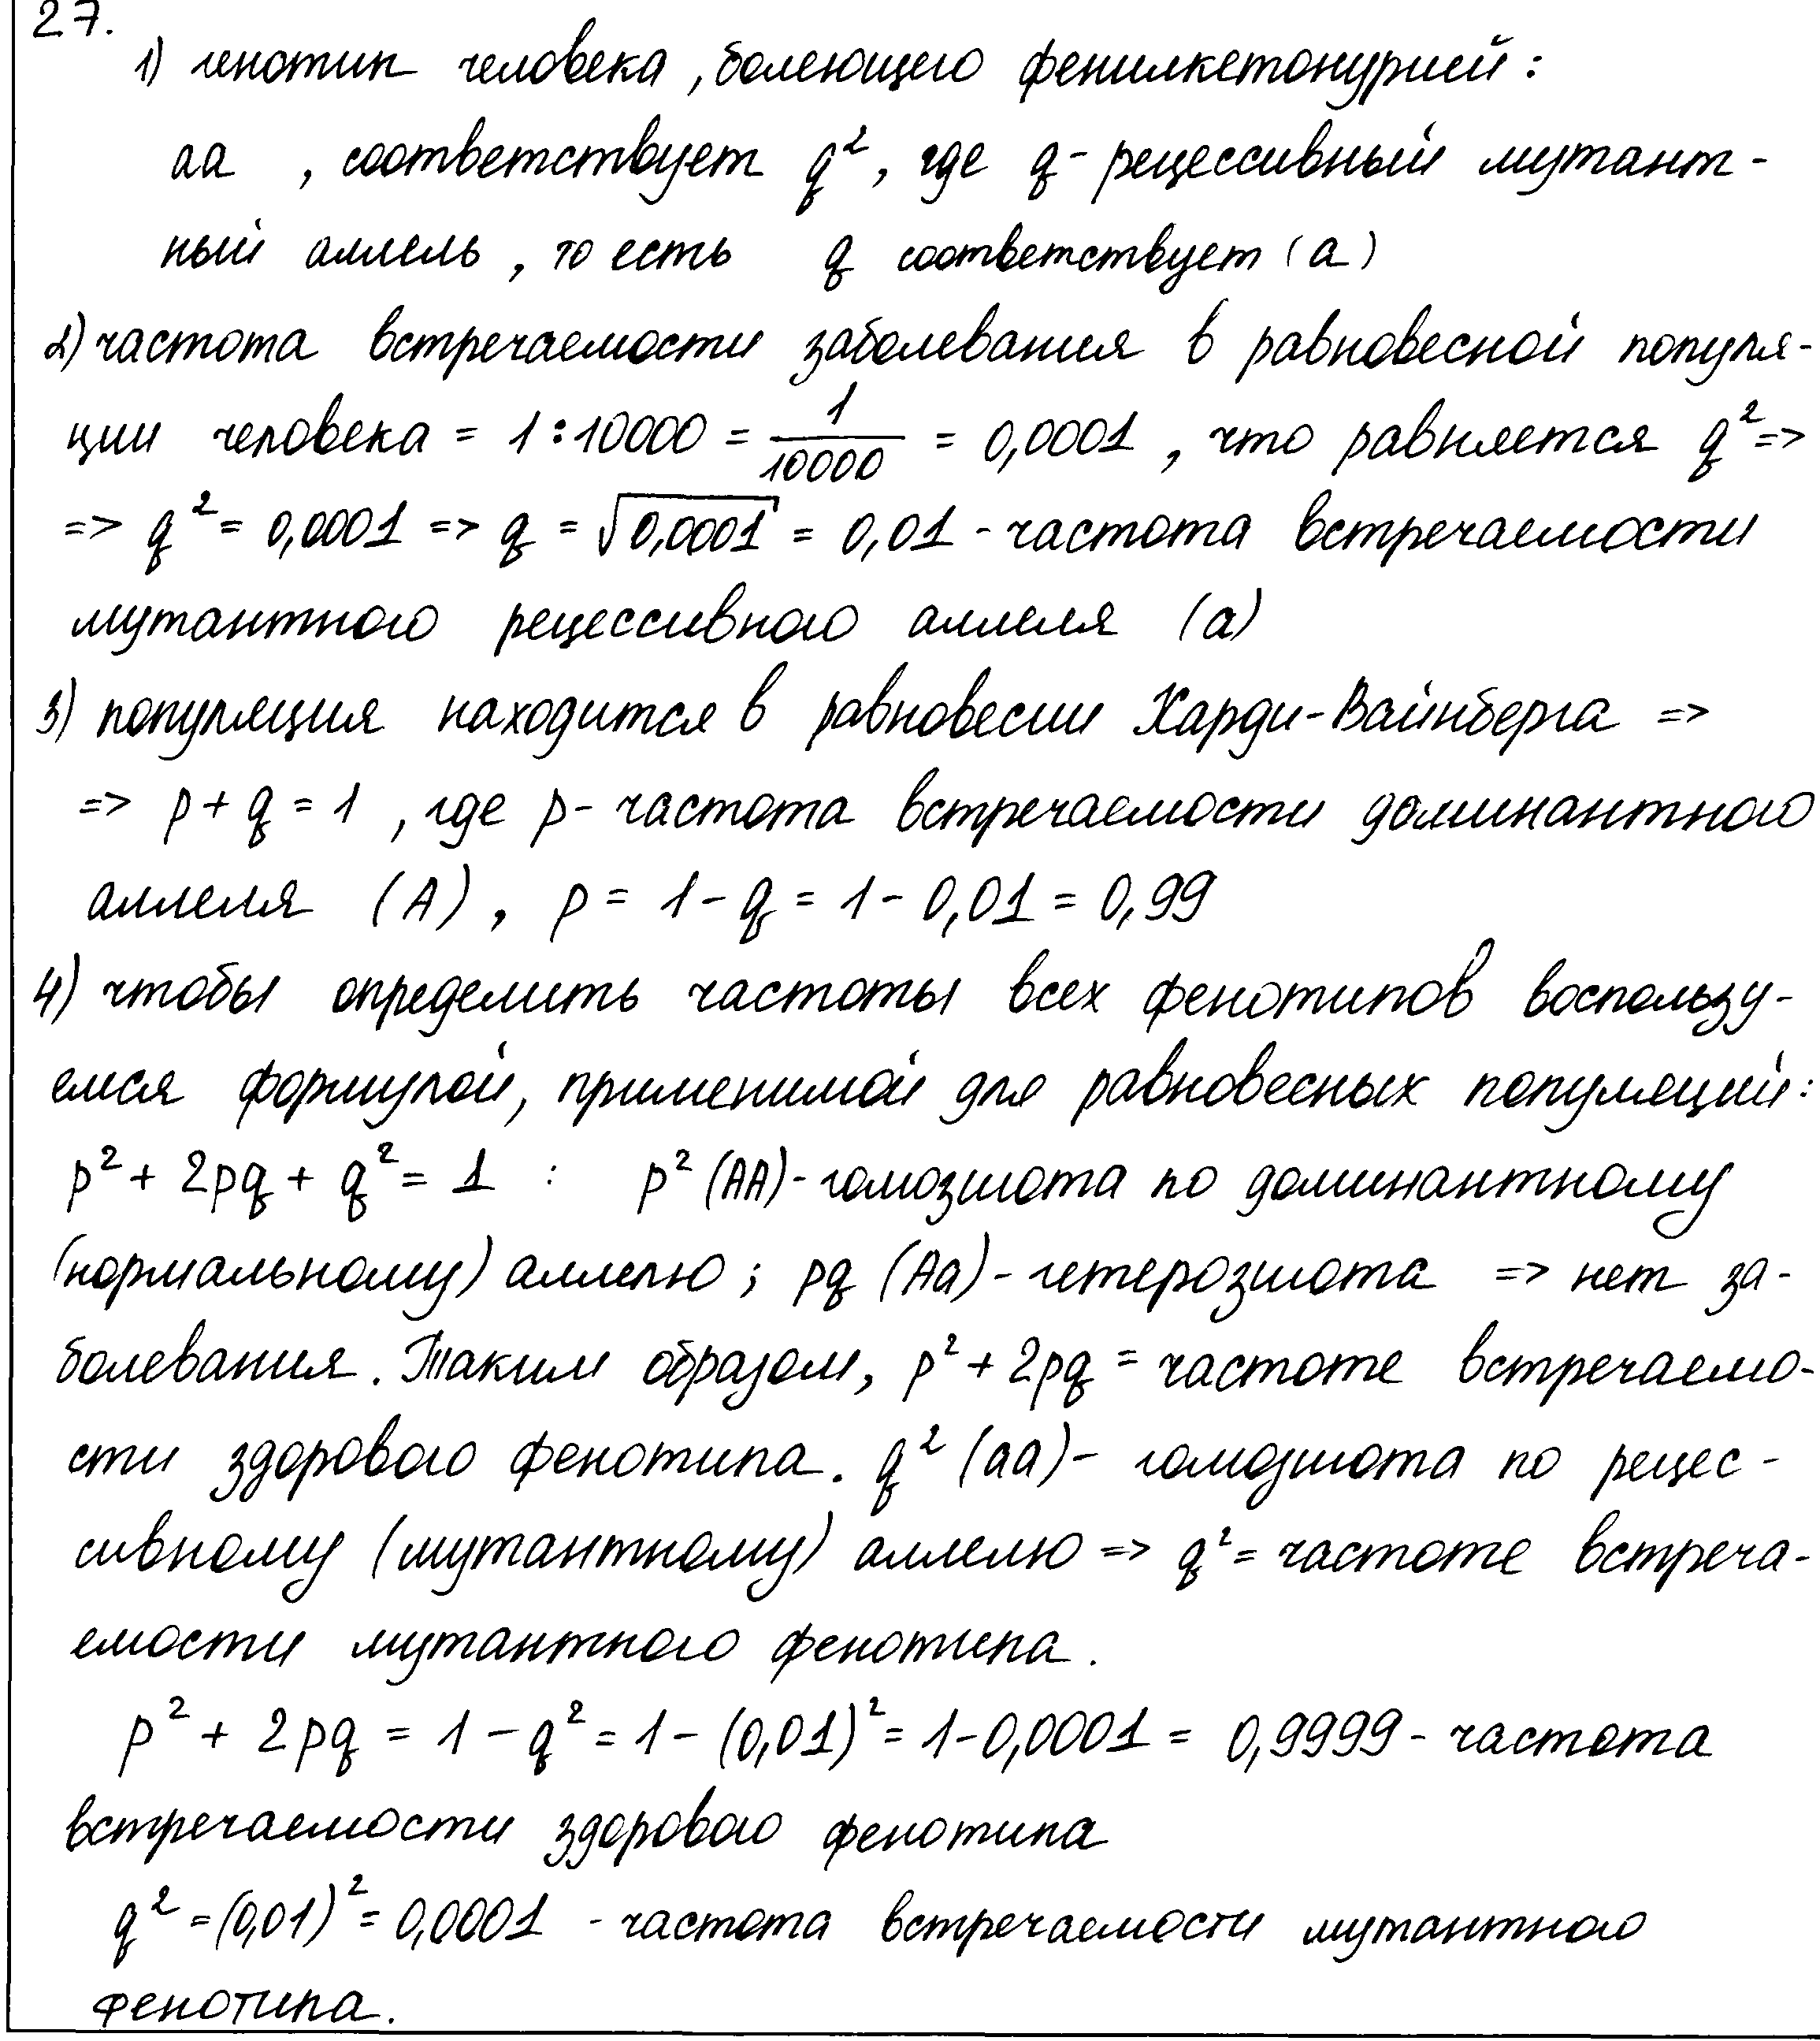 27.
1) генотип человека, болеющего фенилкетонурией:
аа , соответствует q², где q - рецессивный мутант-
ный аллель, то есть q соответствует (а)
2) частота встречаемости заболевания в равновесной популя-
ции человека = 1:10000 = 1/10000 = 0,0001 , что равняется q² =>
=> q² = 0,0001 => q = √0,0001 = 0,01 - частота встречаемости
мутантного рецессивного аллеля (а)
3) популяция находится в равновесии Харди-Вайнберга =>
=> p + q = 1 , где p - частота встречаемости доминантного
аллеля (А) , p = 1 - q = 1 - 0,01 = 0,99
4) чтобы определить частоты всех фенотипов воспользу-
емся формулой, применимой для равновесных популяций:
p² + 2pq + q² = 1 : p² (АА) - гомозигота по доминантному
(нормальному) аллелю ; pq (Аа) - гетерозигота => нет за-
болевания. Таким образом, p² + 2pq = частоте встречаемо-
сти здорового фенотипа. q² (аа) - гомозигота по рецес-
сивному (мутантному) аллелю => q² = частоте встреча-
емости мутантного фенотипа.
p² + 2pq = 1 - q² = 1 - (0,01)² = 1 - 0,0001 = 0,9999 - частота
встречаемости здорового фенотипа
q² = (0,01)² = 0,0001 - частота встречаемости мутантного
фенотипа.